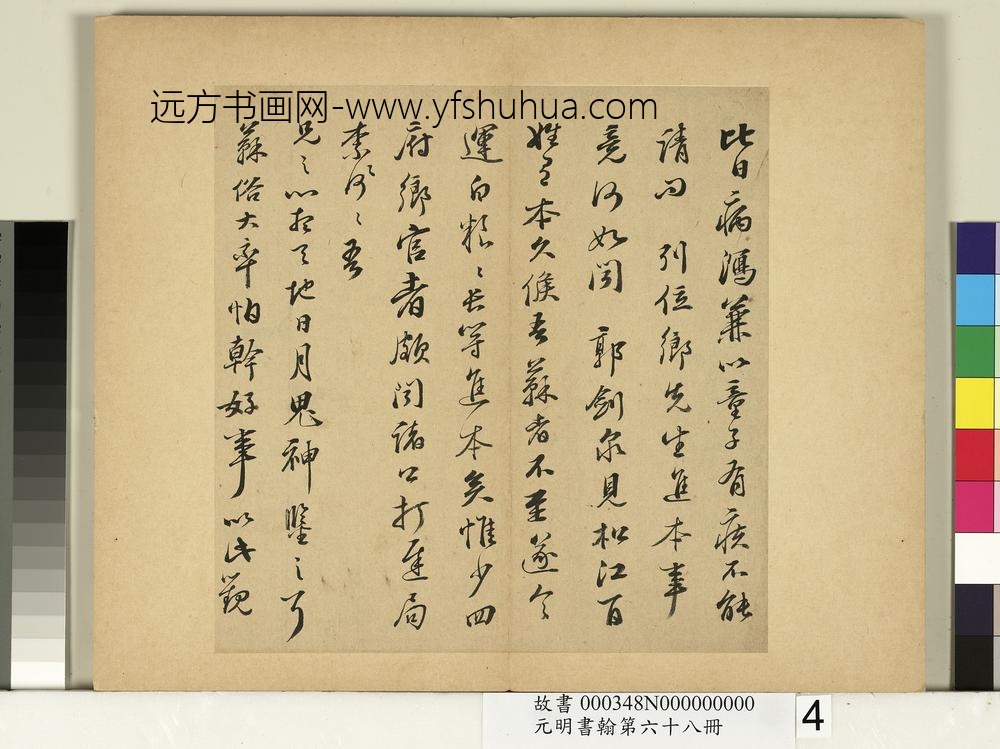 远方书画网-www.yfshuhua.com
比日病瀉兼以童子有疾不能
請問 列位鄉先生進本事
竟何如聞 郭劍泉見松江百
姓已本久候吾蘇者不至遂令
運白粮糧長等進本矣惟少四
府鄉官者頗聞諸公打退局
柰何柰何吾
兄之心想天地日月鬼神鑒之耳
蘇俗大率怕幹好事以此觀
故書 000348N000000000
元明書翰第六十八冊
4